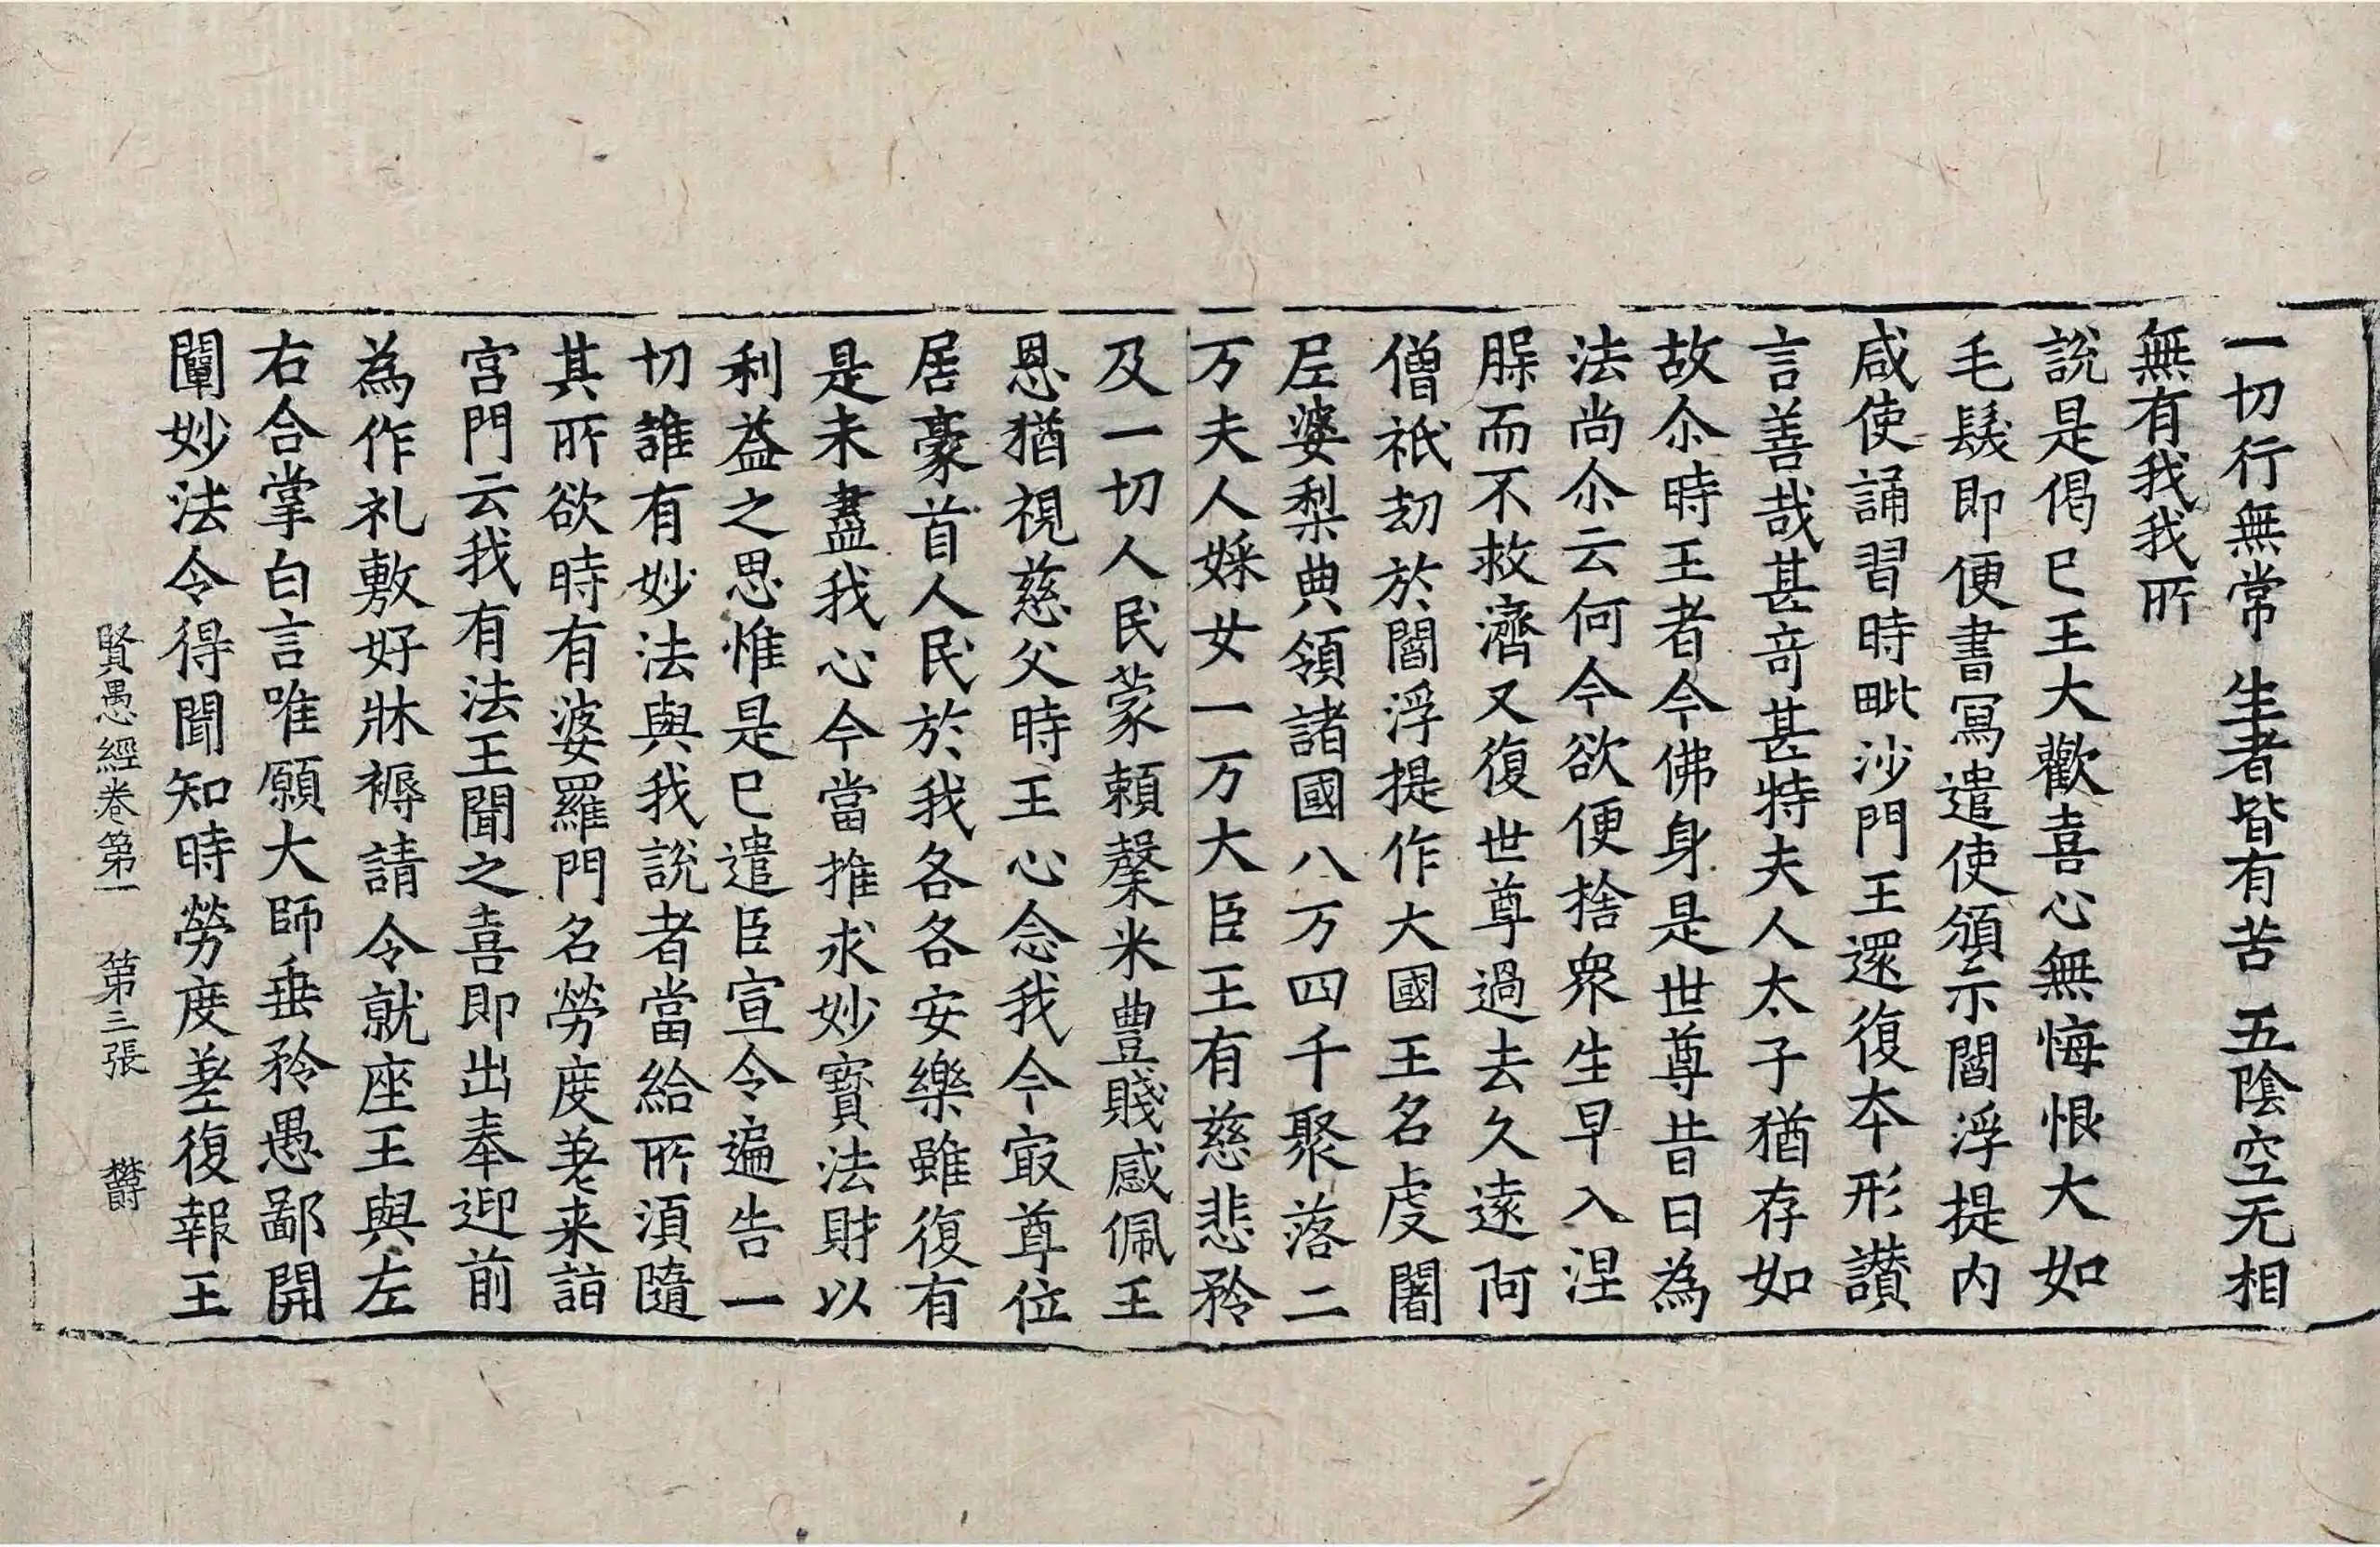 一切行無常　生者皆有苦　五陰空无相
無有我我所
說是偈已王大歡喜心無悔恨大如
毛髮即便書寫遣使頒示閻浮提內
咸使誦習時毗沙門王還復本形讃
言善哉甚竒甚特夫人太子猶存如
故尒時王者今佛身是世尊昔日為
法尚尒云何今欲便捨衆生早入涅
𦙶而不救濟又復世尊過去久遠阿
僧祇劫於閻浮提作大國王名虔闍
尼婆梨典領諸國八万四千聚落二
万夫人婇女一万大臣王有慈悲矜
及一切人民蒙賴䅽米豊賤感佩王
恩猶視慈父時王心念我今冣尊位
居豪首人民於我各各安樂雖復有
是未盡我心今當推求妙寳法財以
利益之思惟是已遣臣宣令遍告一
切誰有妙法與我說者當給所湏隨
其所欲時有婆羅門名勞度差来詣
宮門云我有法王聞之喜即出奉迎前
為作礼敷好牀褥請令就座王與左
右合掌白言唯願大師垂矜愚鄙開
闡妙法令得聞知時勞度差復報王
賢愚經卷第一　第三張　欝